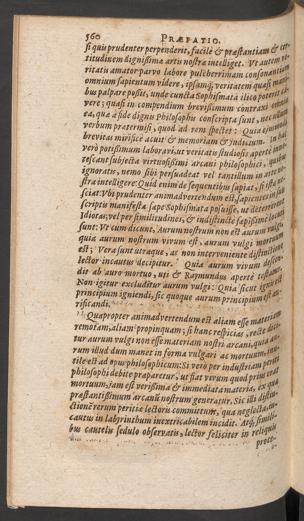 560 PRÆFATIO.
si quis prudenter perpenderit, facilè & præstantiam & cer-
titudinem dignissimæ artis nostræ intelliget. Ut autem ve-
ritatis amator parvo labore pulcherrimam consonantiam
omnium sapientum videre, ipsamq; veritatem quasi mani-
bus palpare possit, unde cuncta Sophismata ilico poterit
vere; quasi in compendium brevissimum contraxi omnia
ea, quæ à fide dignis Philosophis conscripta sunt, nec ullum
verbum prætermisi, quod ad rem spectet: Quia
brevitas mirificè acuit & memoriam & judicium. Id
verò potissimum laboravi, ut veritatis studiosis apertè
tescant subjecta virtuosissimi arcani philosophici,
ignoratis, nemo sibi persuadeat vel tantillum in arte no-
stra intelligere: Quid enim de sequentibus sapiat, si ista
sciat? Ubi prudenter animadvertendum est, sapientes in suis
scriptis manifesta sæpe Sophismata posuisse, ut deterreant
Idiotas, vel per similitudines, & indistinctè sæpissimè locuti
sunt: Ut cum dicunt, Aurum nostrum non est aurum vulgi,
quia aurum nostrum vivum est, aurum vulgi mortuum
est; Vera sunt utraque, at non interveniente distinctione
lector incautus decipitur. Quia aurum vivum descen-
dit ab auro mortuo, uti & Raymundus apertè testatur.
Non igitur excluditur aurum vulgi: Quia sicut ignis est
principium igniendi, sic quoque aurum principium est au-
rificandi.
Quapropter animadvertendum est aliam esse materiam
remotam, aliam propinquam; si hanc respicias, rectè dici-
tur aurum vulgi non esse materiam nostri arcani, quia au-
rum illud dum manet in forma vulgari ac mortuum, inu-
tile est ad opus philosophicum: Si verò per industriam puri
philosophi debitè præparetur, ut fiat vivum quod prius erat
mortuum, jam est verissima & immediata materia, ex qua
præstantissimum arcanum nostrum generatur. Sic illa distin-
ctionê rerum peritiæ lectoris committam, qua neglecta,
cautus in labyrinthum inextricabilem incidit. Atq; simili-
bus cautelis sedulo observatis, lector feliciter in reliquis
proce-